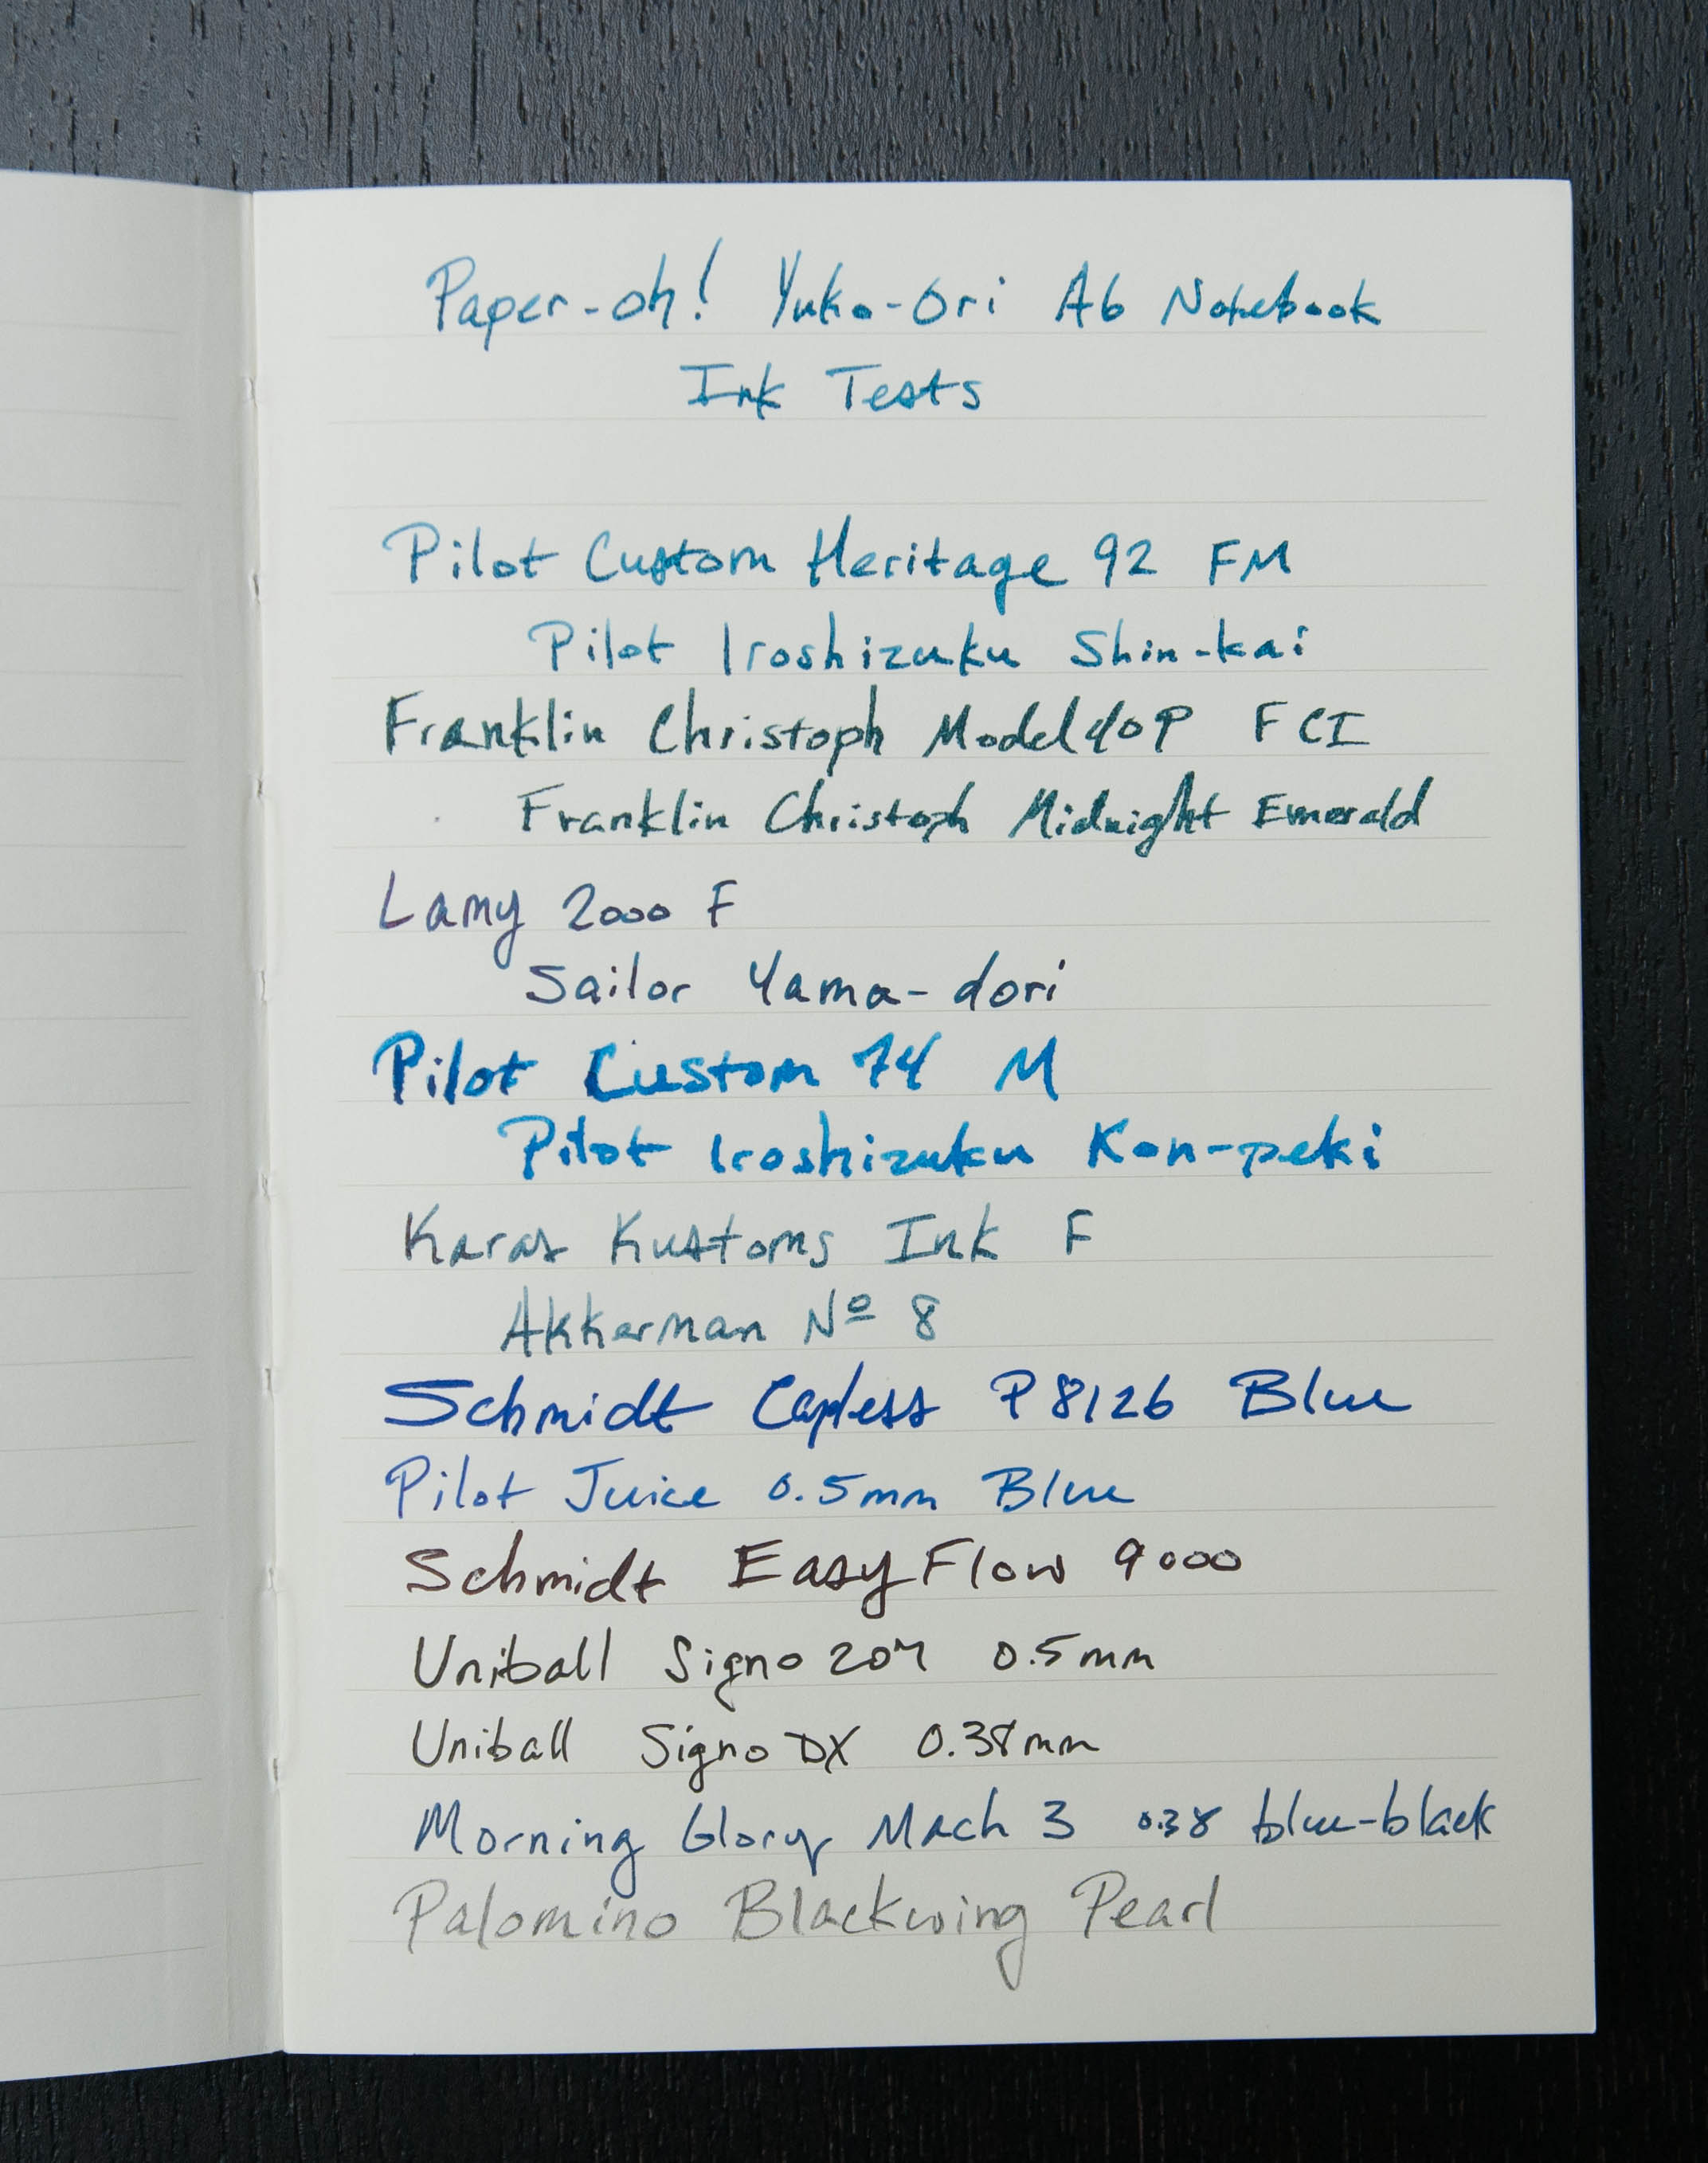 Paper-oh! Yuko-Ori A6 Notebook
Ink Tests
Pilot Custom Heritage 92 FM
Pilot Iroshizuku Shin-kai
Franklin Christoph Model 40P F CI
Franklin Christoph Midnight Emerald
Lamy 2000 F
Sailor Yama-dori
Pilot Custom 74 M
Pilot Iroshizuku Kon-peki
Karas Kustoms Ink F
Akkerman Nº 8
Schmidt Capless P8126 Blue
Pilot Juice 0.5mm Blue
Schmidt EasyFlow 9000
Uniball Signo 207 0.5mm
Uniball Signo DX 0.38mm
Morning Glory Mach 3 0.38 blue-black
Palomino Blackwing Pearl